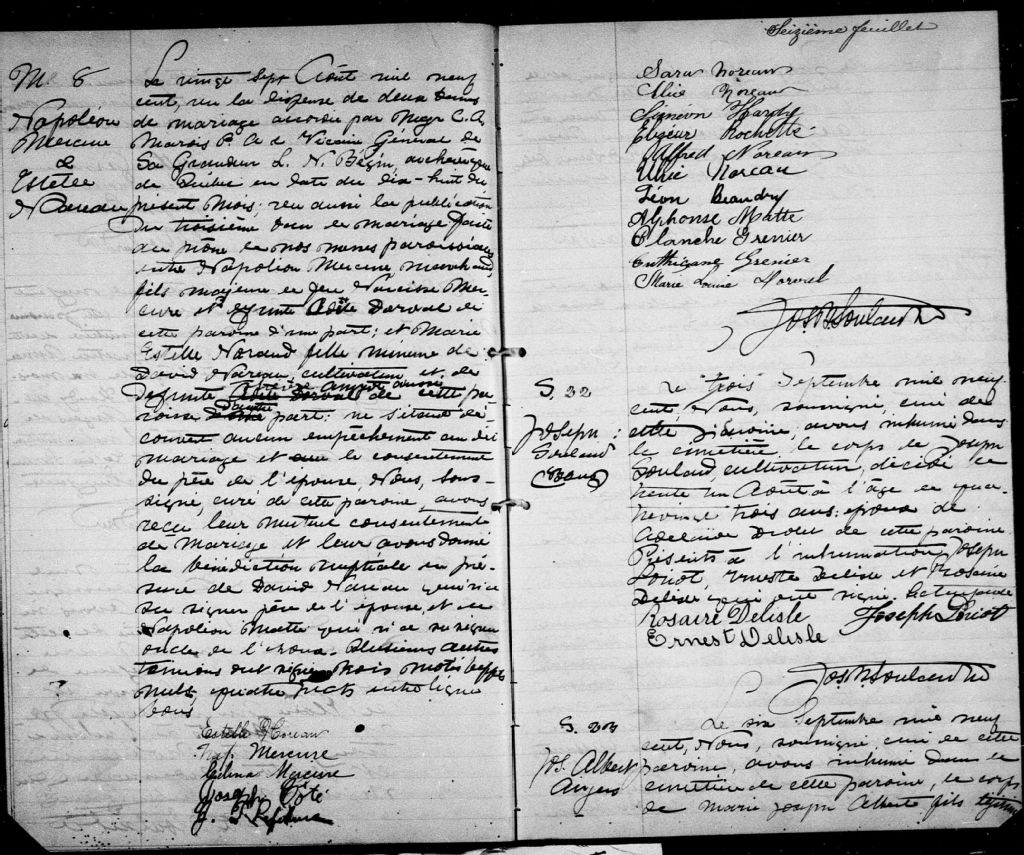 M. 8
Napoléon
Mercure
&
Estelle
Noreau
Le vingt sept Août mil neuf
cent, vu la dispense de deux bans
de mariage accordée par Mgr C. A.
Marois P. A. & Vicaire Général de
Sa Grandeur L. N. Bégin, archevêque
de Québec en date du dix-huit du
présent mois; vu aussi la publication
du troisième ban de mariage faite
au prône de nos messes paroissiales
entre Napoléon Mercure, marchand
fils majeur de feu Narcisse Mer-
cure et de défunte Adèle Dorval de
cette paroisse d'une part; et Marie
Estelle Noreau fille mineure de
David Noreau, cultivateur et de
défunte
cette pa-
roisse d'autre part: ne s'étant dé-
couvert aucun empêchement au dit
mariage et le consentement
du père de l'épouse, Nous, sous-
signé, curé de cette paroisse, avons
reçu leur mutuel consentement
de mariage et leur avons donné
la bénédiction nuptiale en pré-
sence de David Noreau qui n'a
su signer père de l'épouse, et de
Napoléon Matte qui n'a su signer
oncle de l'époux. Plusieurs autres
témoins ont signé. trois mots biffés
nuls, quatre mots entre ligne
bons
Estelle Noreau
Nap. Mercure
Gélina Mercure
Joseph Côté
Seizième feuillet
Sara Noreau
Alice Noreau
Siméon Hardy
Elzéar Rochette
Alfred Noreau
Ulric Noreau
Léon Beaudry
Alphonse Matte
Blanche Grenier
Grenier
Marie Louise Dorval
S. 32
Joseph
Soulard
Le trois Septembre mil neuf
cent, Nous, soussigné, curé de
cette paroisse, avons inhumé dans
le cimetière, le corps de Joseph
Soulard, cultivateur, décédé le
trente un Août à l'âge de qua-
trevingt trois ans: époux de
Adelaïde Drolet de cette paroisse
Présents à l'inhumation Joseph
Loriot, Erneste Delisle et Rosaire
Delisle qui ont signé. Lecture faite
Rosaire Delisle Joseph Loriot
Ernest Delisle
S. 33
Js. Albert
Angers
Le six Septembre mil neuf
cent, Nous, soussigné, curé de cette
paroisse, avons inhumé dans le
cimetière de cette paroisse, le corps
de Marie Joseph Albert fils